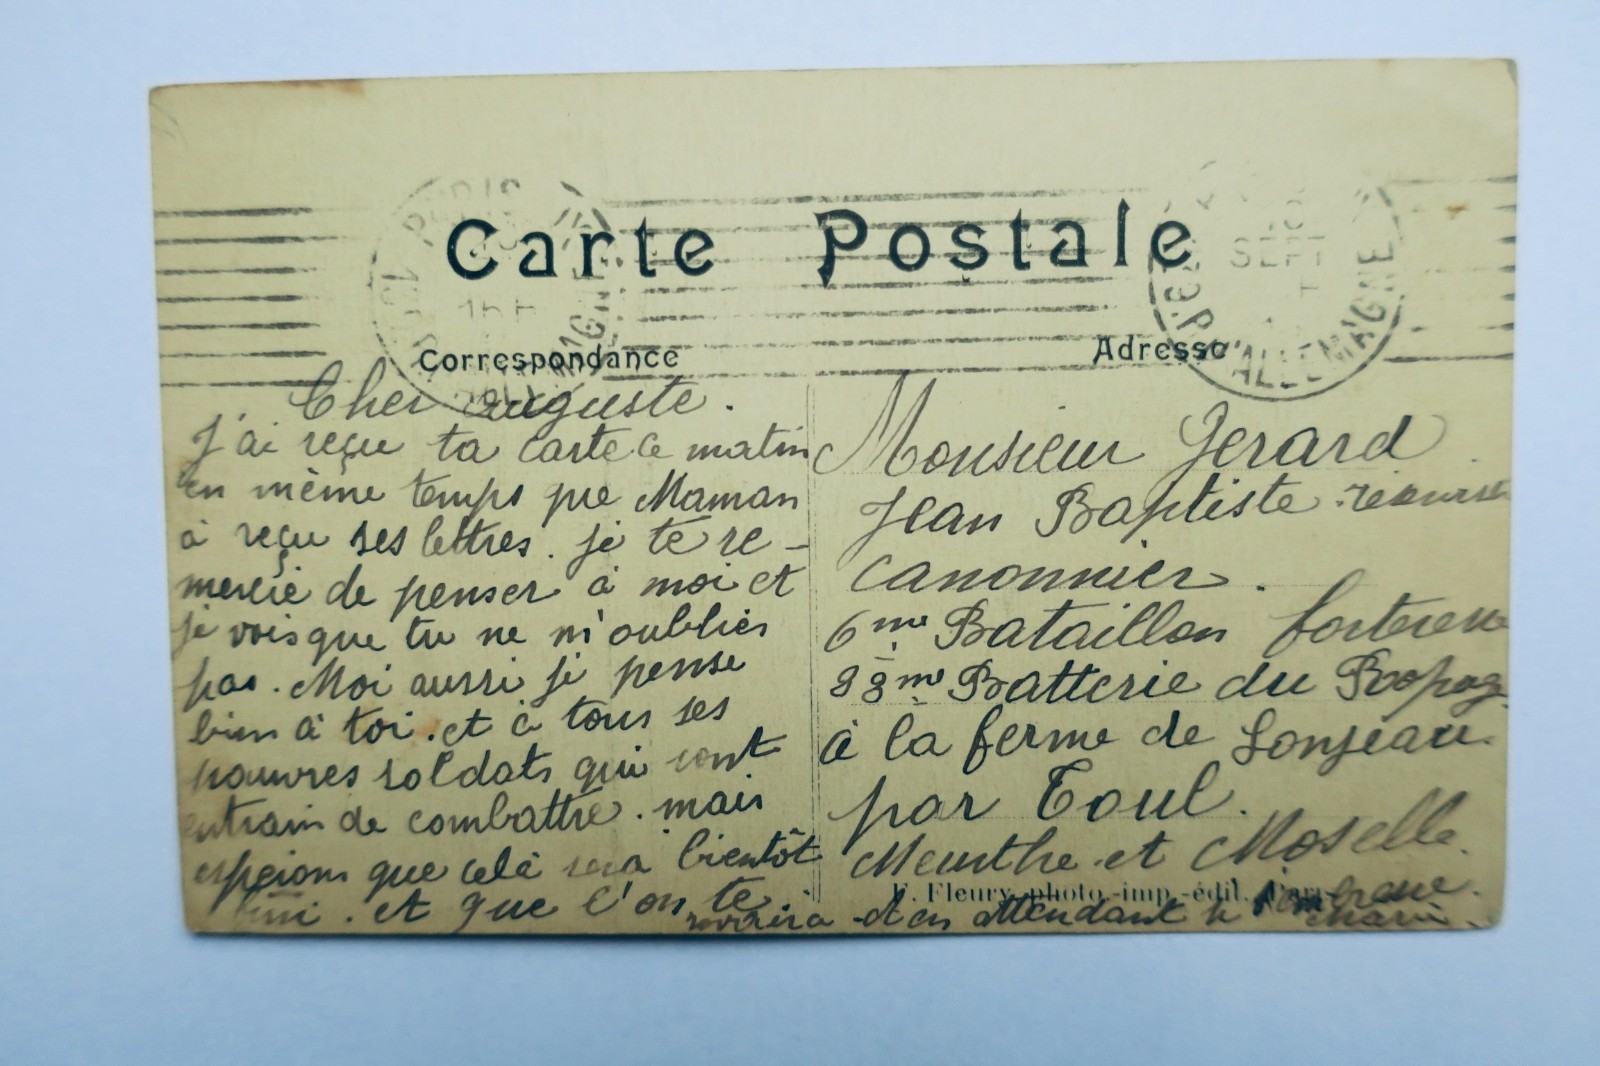 Carte Postale
Correspondance
Cher Auguste.
J'ai reçu ta carte ce matin
en même temps que Maman
à reçu ses lettres. je te re-
mercie de penser à moi et
je vois que tu ne m'oublies
pas. Moi aussi je pense
bien à toi. et à tous ses
pauvres soldats qui sont
entrain de combattre. mais
espérons que celà sera bientôt
fini. et que l'on te
reverra et en attendant je t'embrasse.
Marie
Adresse
Monsieur Gerard
Jean Baptiste réserviste
Canonnier.
6me Bataillon forteresse
8me Batterie du
à la ferme de Lonjeau.
par Toul.
Meurthe et Moselle.
F. Fleury, photo.-imp.-édit.
PARIS
SEPT
R. D'ALLEMAGNE